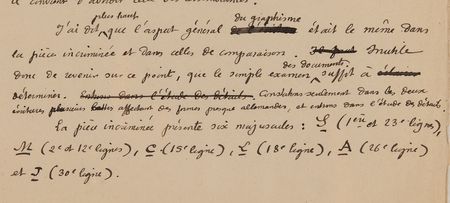 a convenu d'abord
plus haut
du graphisme
J'ai dit que l'aspect général était le même dans
la pièce incriminée et dans celles de comparaison. Inutile
des documents
donc de revenir sur ce point, que le simple examen suffit à
déterminer. Entrons dans l'étude des détails. Constatons seulement dans les deux
écritures plusieurs lettres affectant des formes presque allemandes, et entrons dans l'étude des détails.
La pièce incriminée présente six majuscules : S (1ère et 23e lignes),
M (2e et 12e lignes), C (15e ligne), L (18e ligne), A (26e ligne)
et J (30e ligne).